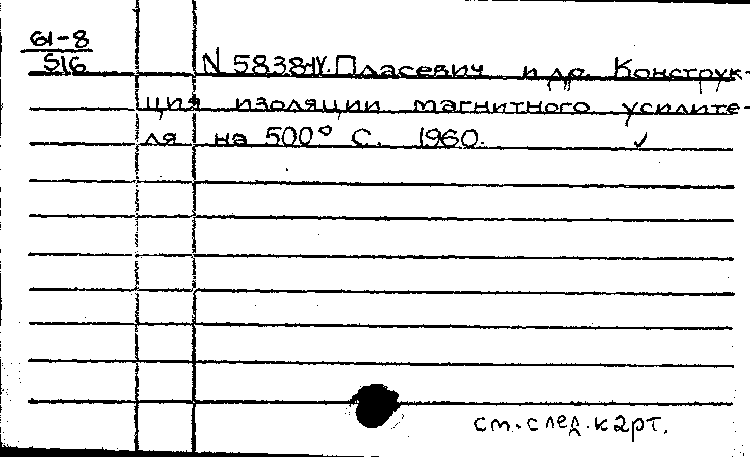 61-8
516
N 5838-IV. Пласевич и др. Конструк-
ция изоляции магнитного усилите-
ля на 500° С. 1960. ✓
см. след. карт.